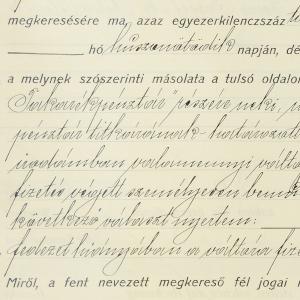 megkeresésére ma, azaz egyezerkilenczszáz
hó huszonötödik napján, dé
a melynek szószerinti másolata a tulsó oldalon
Takarékpénztár részére neki, m
pénztár titkárának - határozatt
irodámban valamennyi váltó
fizetés végett személyesen bemu
következő választ nyertem:
fedezet hiányában a váltóra fize
Miről, a fent nevezett megkereső fél jogai